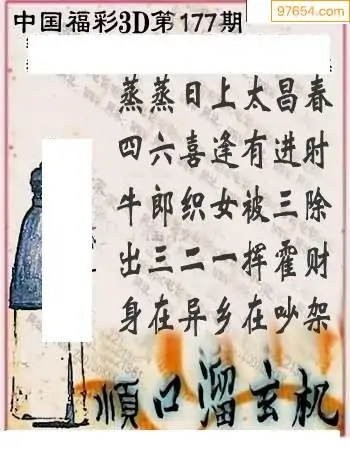 97654.com
中国福彩3D第177期
蒸蒸日上太昌春
四六喜逢有进时
牛郎织女被三除
出三二一挥霍财
身在异乡在吵架
顺口溜玄机